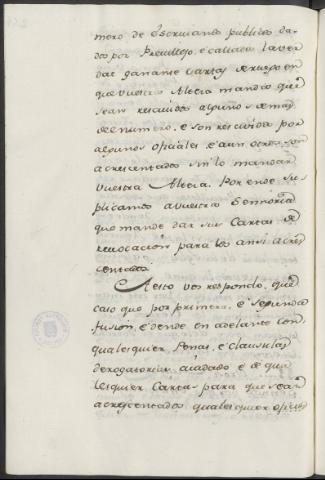 mero de Escrivanos publicos da-
dos por Previllejo, é callada la ver
dad gananse Cartas de ruego en
que vuestra Alteza mandó que
sean rescividos algunos demas
del numero, é son rescividos por
algunos oficiales é aun otros son
acrescentados sin lo mandar
vuestra Alteza. Por ende su-
plicamos a vuestra Señoria
que mande dar sus Cartas de
revocacion para los ansi acres
centados.
A esto vos respondo, que
caso que por primera, é segunda
fusion, é dende en adelante con
qualesquier Penas, é clausulas
derogatorias aiadado é de qua
lesquier Cartas para que sean
acrescentados qualesquier oficios